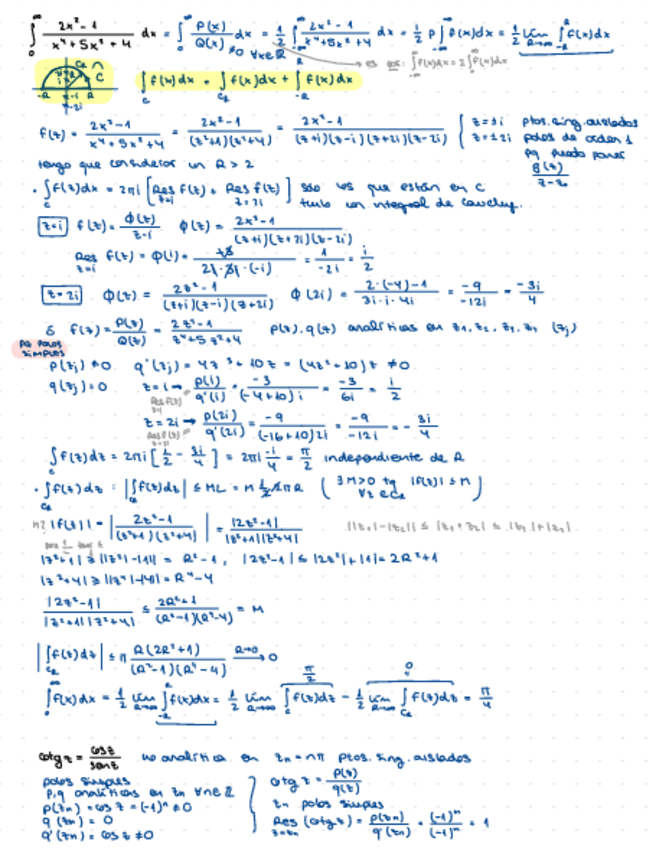 ∫₀^∞ (2x²-1)/(x⁴+5x²+4) dx = ∫₀^∞ P(x)/Q(x) dx = 1/2 ∫_{-∞}^{∞} (2x²-1)/(x⁴+5x²+4) dx = 1/2 P∫_{-∞}^{∞} f(x)dx = 1/2 lim_{R→∞} ∫_{-R}^{R} f(x)dx
≠0 ∀x∈ℝ
es par: ∫_{-∞}^{∞} f(x)dx = 2∫₀^∞ f(x)dx
∫_C f(x)dx = ∫_{C_R} f(x)dx + ∫_{-R}^{R} f(x)dx
f(z) = (2x²-1)/(x⁴+5x²+4) = (2x²-1)/((z²+1)(z²+4)) = (2x²-1)/((z+i)(z-i)(z+2i)(z-2i))
z=±i ptos. sing. aislados
z=±2i polos de orden 1
pq puedo poner
tengo que considerar un R>2
· ∫_C f(z)dx = 2πi [Res_{z=i} f(z) + Res_{z=2i} f(z)] son los que están en C
integral de Cauchy.
z=i f(z) = Φ(z)/(z-i) Φ(z) = (2x²-1)/((z+i)(z+2i)(z-2i))
Res_{z=i} f(z) = Φ(i) = -3/(2i·3i·(-i)) = 1/(-2i) = i/2
z=2i Φ(z) = (2z²-1)/((z+i)(z-i)(z+2i)) Φ(2i) = (2·(-4)-1)/(3i·i·4i) = -9/(-12i) = -3i/4
ó f(z) = P(z)/Q(z) = (2z²-1)/(z⁴+5z²+4) p(z), q(z) analíticas en z₁, z₂, z₃, z₄ (zj)
pq polos simples
p(zj) ≠0 q'(zj) = 4z³+10z = (4z²+10)z ≠0
q(zj) = 0 z=i → p(i)/q'(i) = -3/((-4+10)i) = -3/6i = i/2
Res f(z)
z=2i → p(2i)/q'(2i) = -9/((-16+10)2i) = -9/(-12i) = -3i/4
Res f(z)
∫_C f(z)dz = 2πi [i/2 - 3i/4] = 2πi · -i/4 = π/2 independiente de R
· ∫_{C_R} f(z)dz : |∫f(z)dz| ≤ ML = M 1/2 2πR (∃M>0 tq |f(z)| ≤ M ∀z∈C_R)
M? |f(z)| = |(2z²-1)/((z²+1)(z²+4))| = |2z²-1|/(|z²+1||z²+4|) ||z₁|-|z₂|| ≤ |z₁+z₂| ≤ |z₁|+|z₂|
|z²+1| ≥ ||z²|-|1|| = R²-1, |2z²-1| ≤ |2z²|+|1| = 2R²+1
|z²+4| ≥ ||z²|-|4|| = R²-4
|2z²-1|/(|z²+1||z²+4|) ≤ (2R²+1)/((R²-1)(R²-4)) = M
|∫_{C_R} f(z)dz| ≤ π R(2R²+1)/((R²-1)(R²-4)) → 0
∫₀^∞ f(x)dx = 1/2 lim_{R→∞} ∫_{-R}^{R} f(x)dx = 1/2 lim_{R→∞} ∫_C f(z)dz - 1/2 lim_{R→∞} ∫_{C_R} f(z)dz = π/4
π/2 0
cotg z = cosz/senz no analítica en zn = nπ ptos. sing. aislados
polos simples
p,q analíticas en zn ∀n∈ℤ
p(zn) = cos z = (-1)ⁿ ≠0
q(zn) = 0
q'(zn) = cos z ≠0
cotg z = p(z)/q(z)
zn polos simples
Res_{z=zn} (cotg z) = p(zn)/q'(zn) = (-1)ⁿ/(-1)ⁿ = 1